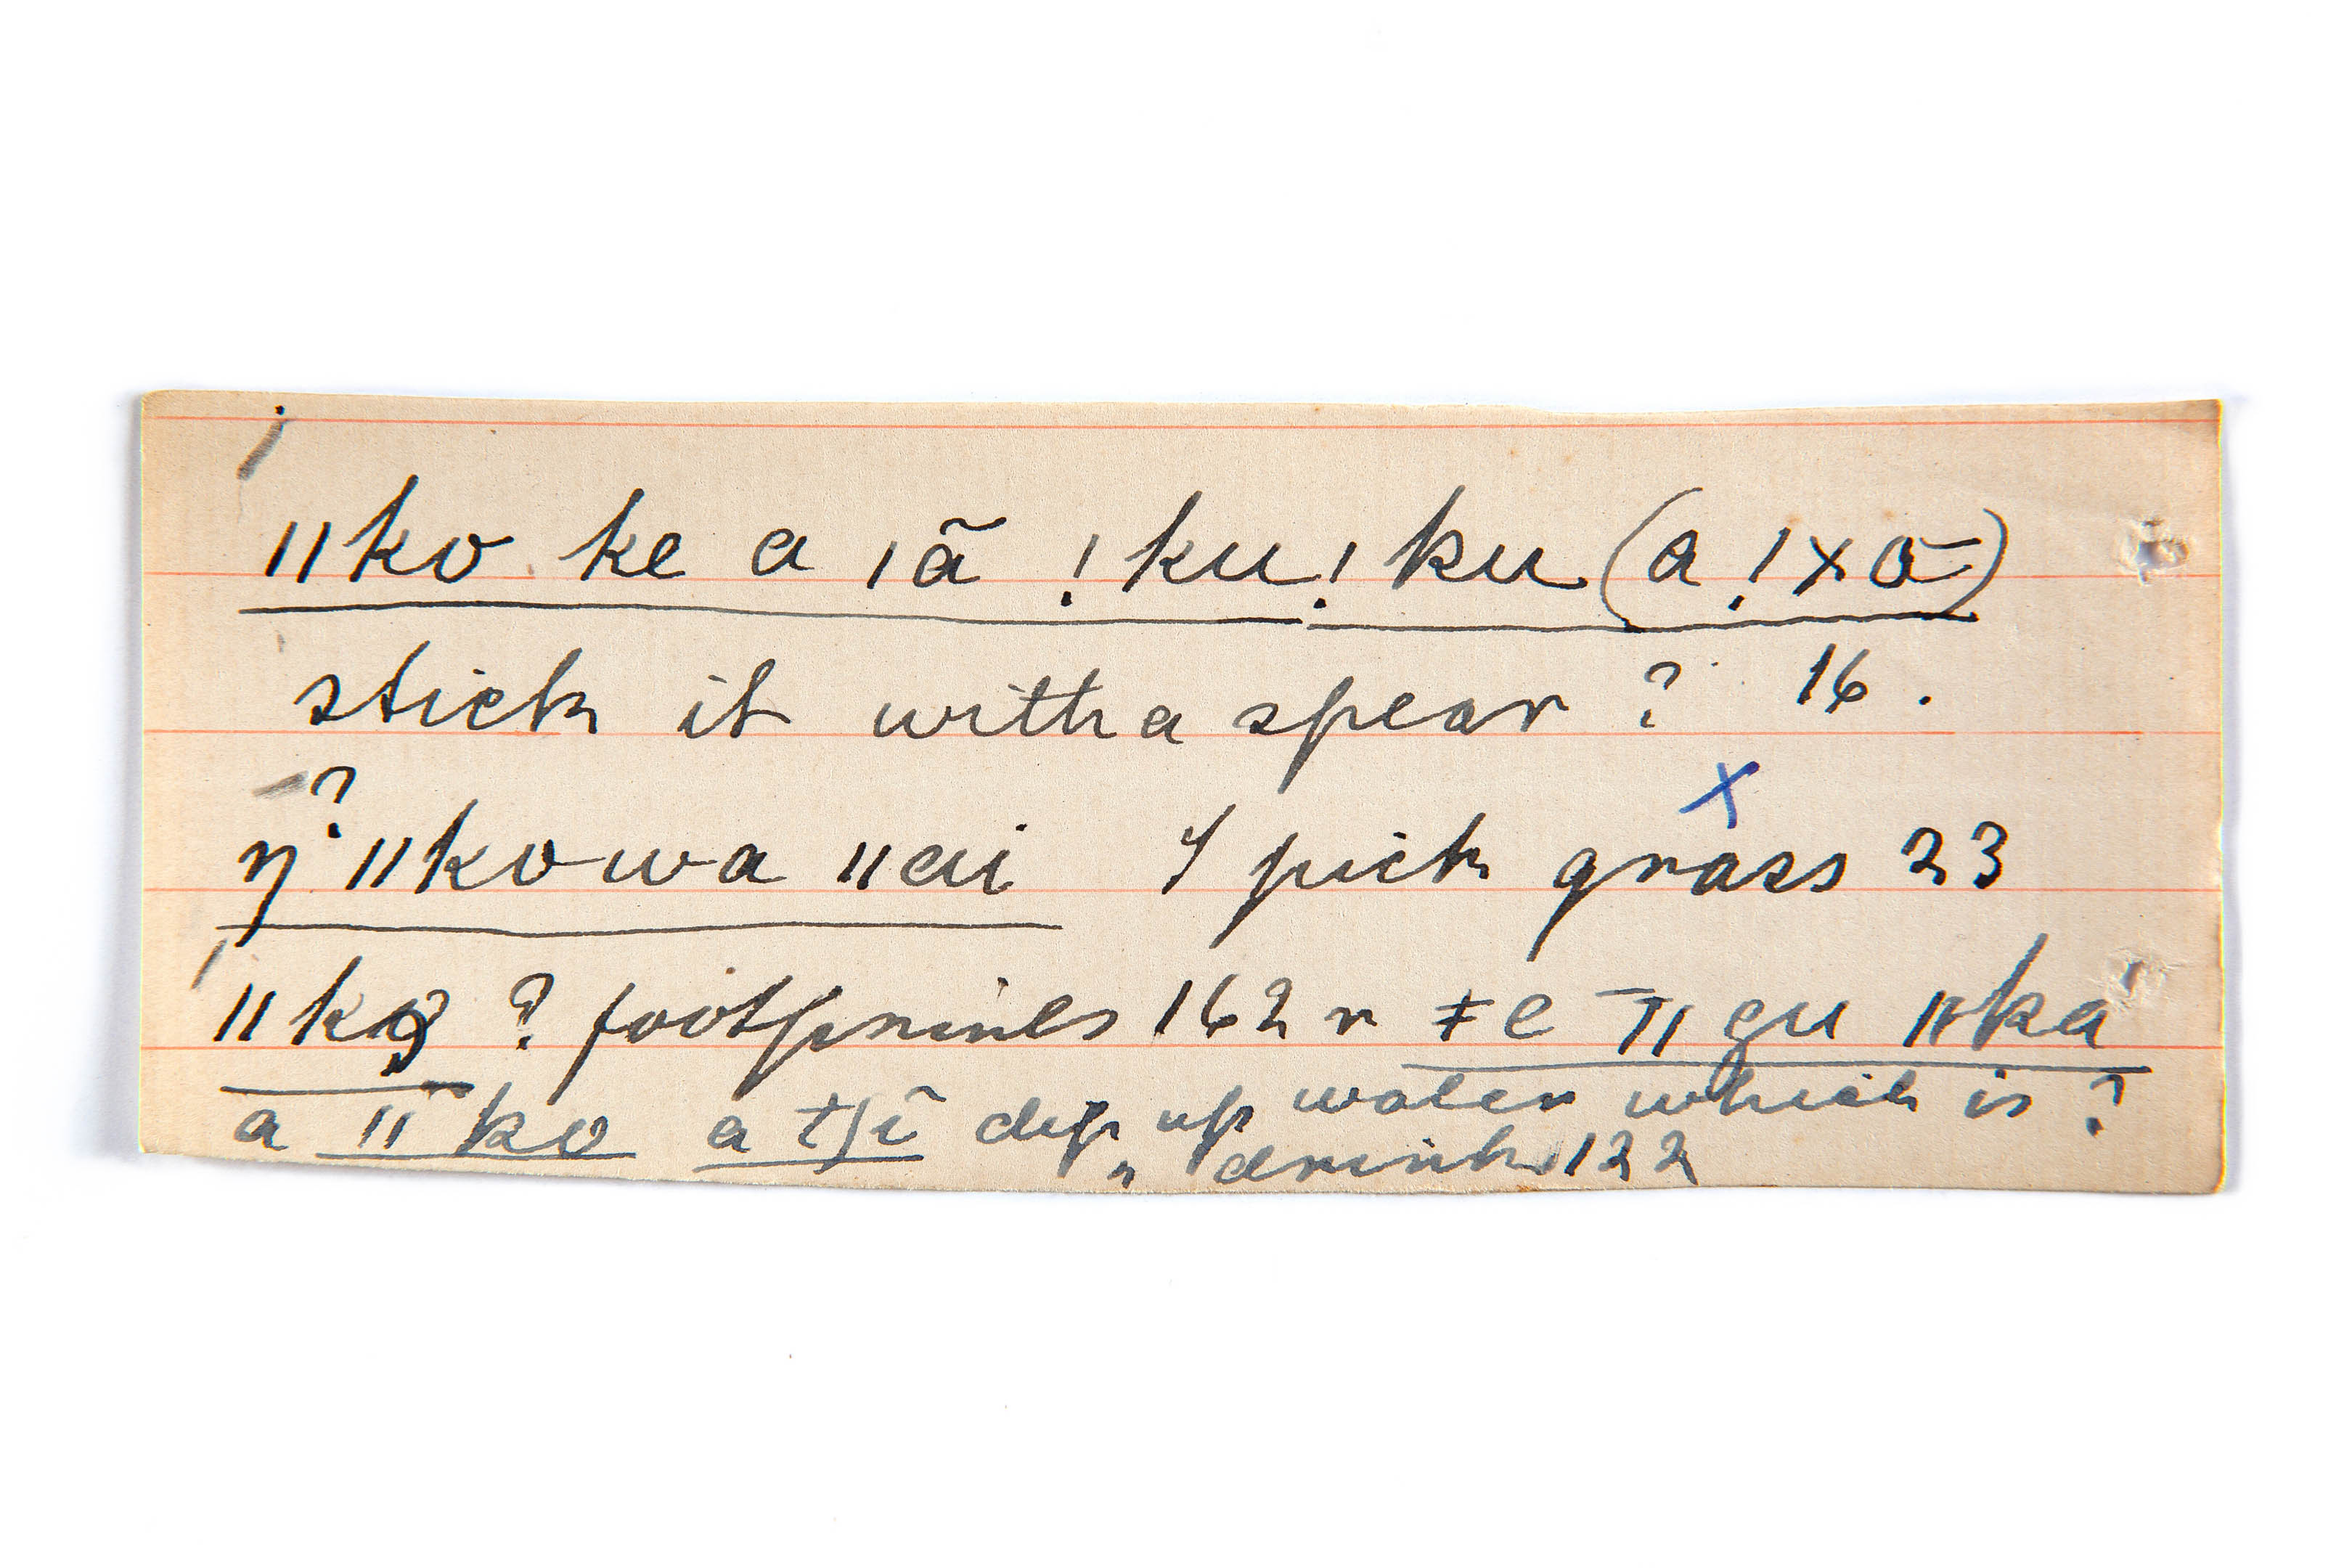 ǁko ke a ǀã !ku!ku (a !xō)
stick it with a spear ? 16.
ŋ? ǁkowa ǁai I pick grass 23
ǁko ? footprints 162 r ǂe ǁgu ǁka
a ǁko a tʃĩ dip up water which is ?
" drink 122